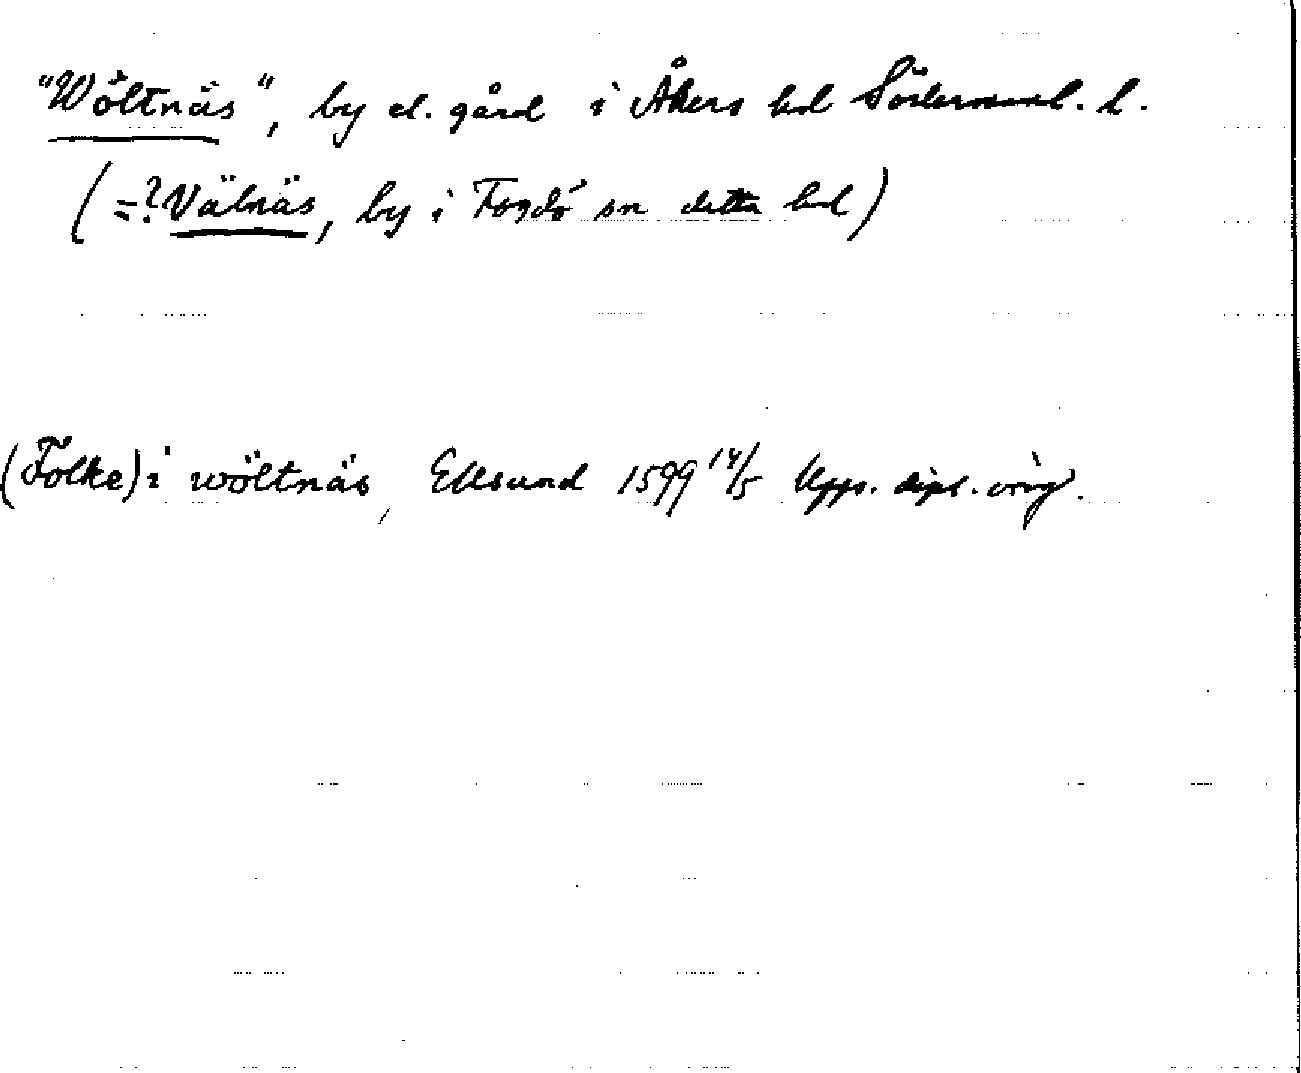 "Wöltnäs", by el. gård i Åkers hd Södermanl. l.
(=? Välnäs, by i Fogdö sn detta hd)
(Folke) i wöltnäs, Eksund 1599 14/5 Upps. dipl. orig.